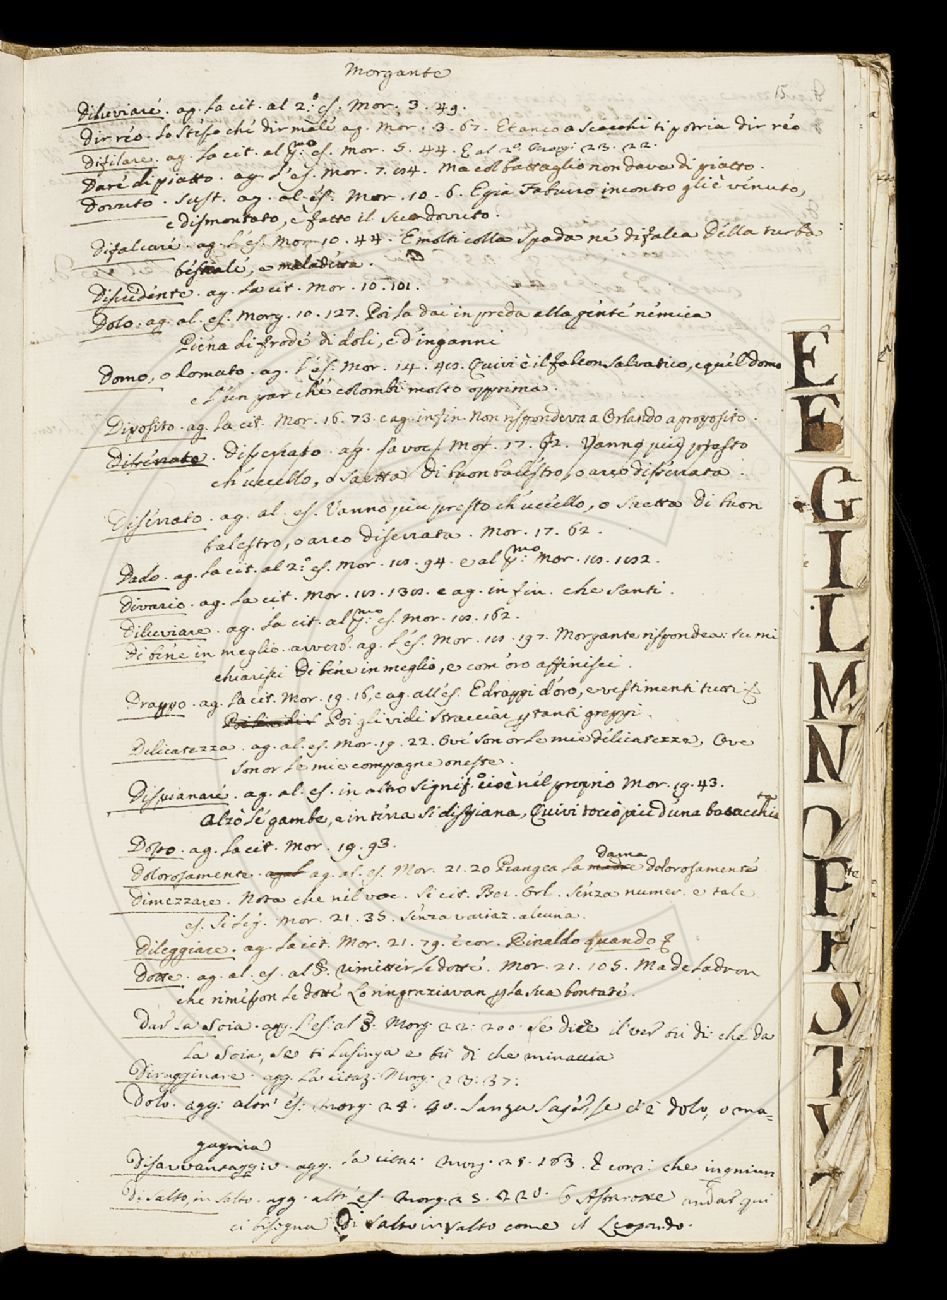 Morgante
15
Diluviare. ag. la cit. al 2.° es. Mor. 3. 49.
Dir reo. lo stesso che dir male ag. Mor. 3. 67. Et anco a scacchi ti potria dir reo
Difilare. ag. la cit. al p.mo es. Mor. 5. 44. E al 2.° Morg. 23. 22.
Dare di piatto. ag. l'es. Mor. 7. Ma col battaglio non dava di piatto.
Dovuto. sust. ag. al. es. Mor. 10. 6. E gia Faburro incontro gli è venuto,
e dismontato, e fatto il suo dovuto.
Difalcare. ag. l'es. Mor. 10. 44. E molti colla spada ne difalca Della turba
bestiale, e maladetta.
Discedente. ag. la cit. Mor. 10. 101.
Dolo. ag. al. es. Morg. 10. 127. Poi la dai in preda alla gente nemica
Piena di frode di doli, e d'inganni
Domo, o Lomato. ag. l'es. Mor. 14. Quivi è il falcon salvatico, e quel domo
e l'un par che colombi molto opprima.
Diposito. ag. la cit. Mor. 16. 73. e ag. infin. Non rispondeva a Orlando a proposito.
Diserrato. Disserrato. ag. la voce Mor. 17. 62. Vanno piu presto
ch'uccello, o saetta Di buon balestro, o arco disserrata.
Diserrato. ag. al. es. Vanno piu presto ch'uccello, o saetta Di buon
balestro, o arco diserrata. Mor. 17. 62.
Dado. ag. la cit. al 2.° es. Mor. 18. 94. e al p.mo Mor. 18.
Divario. ag. la cit. Mor. 18. e ag. in fin. che santi.
Diluviare. ag. la cit. al p.mo es. Mor. 18. 162.
Di bene in meglio. avverb. ag. l'es. Mor. 18. 197. Morgante rispondea: tu mi
chiarisci Di bene in meglio, e com' oro affinisci.
Drappo. ag. la cit. Mor. 19. 16, e ag. all'es. E drappi d'oro, e vestimenti tutti
Poi gli vidi stracciar tanti greppi.
Delicatezza. ag. al. es. Mor. 19. 22. Ove son or le mie delicatezze, Ove
son or le mie compagne oneste.
Dispianare. ag. al. es. in altro signif. cioè nel proprio Mor. 19. 43.
Alzò le gambe, e in terra si dispiana, Quivi toccò piu d'una batacchiata
Dopo. ag. la cit. Mor. 19. 93.
Dolorosamente. ag. al. es. Mor. 21. 20 Piangea la dama dolorosamente
Dimezzare. Nota che nel voc. si cit. Ber. Orl. senza numer. e tale
es. si leg. Mor. 21. 35. senza variaz. alcuna.
Dileggiare. ag. la cit. Mor. 21. 79. e cor. Rinaldo quando
Dotte. ag. al. es. al §. rimetter le dotte. Mor. 21. 105. Ma de ladron
che rimesson le dotte Lo ringraziavan p la sua bontate.
Dar la soia. agg. l'es. al §. Morg. 22. 200. Se dice il ver tu di che da
la soia, se ti lusinga e tu di che minaccia
Dirugginare. agg. la citaz. Morg. 23. 37.
Dolo. agg. altr' es. Morg. 24. 40. Sanza sapere se c'è dolo, o ma=
gagnia
Disavvantaggio. agg. la citaz. Morg. 25. 163. E corr. che ingnium
Di salto, in salto. agg. altr' es. Morg. 25. 220. O Astarotte andar qui
ci bisogna Di salto in salto come il Leopardo.
E
F
G
I
L
M
N
O
P
R
S
T
V
Z